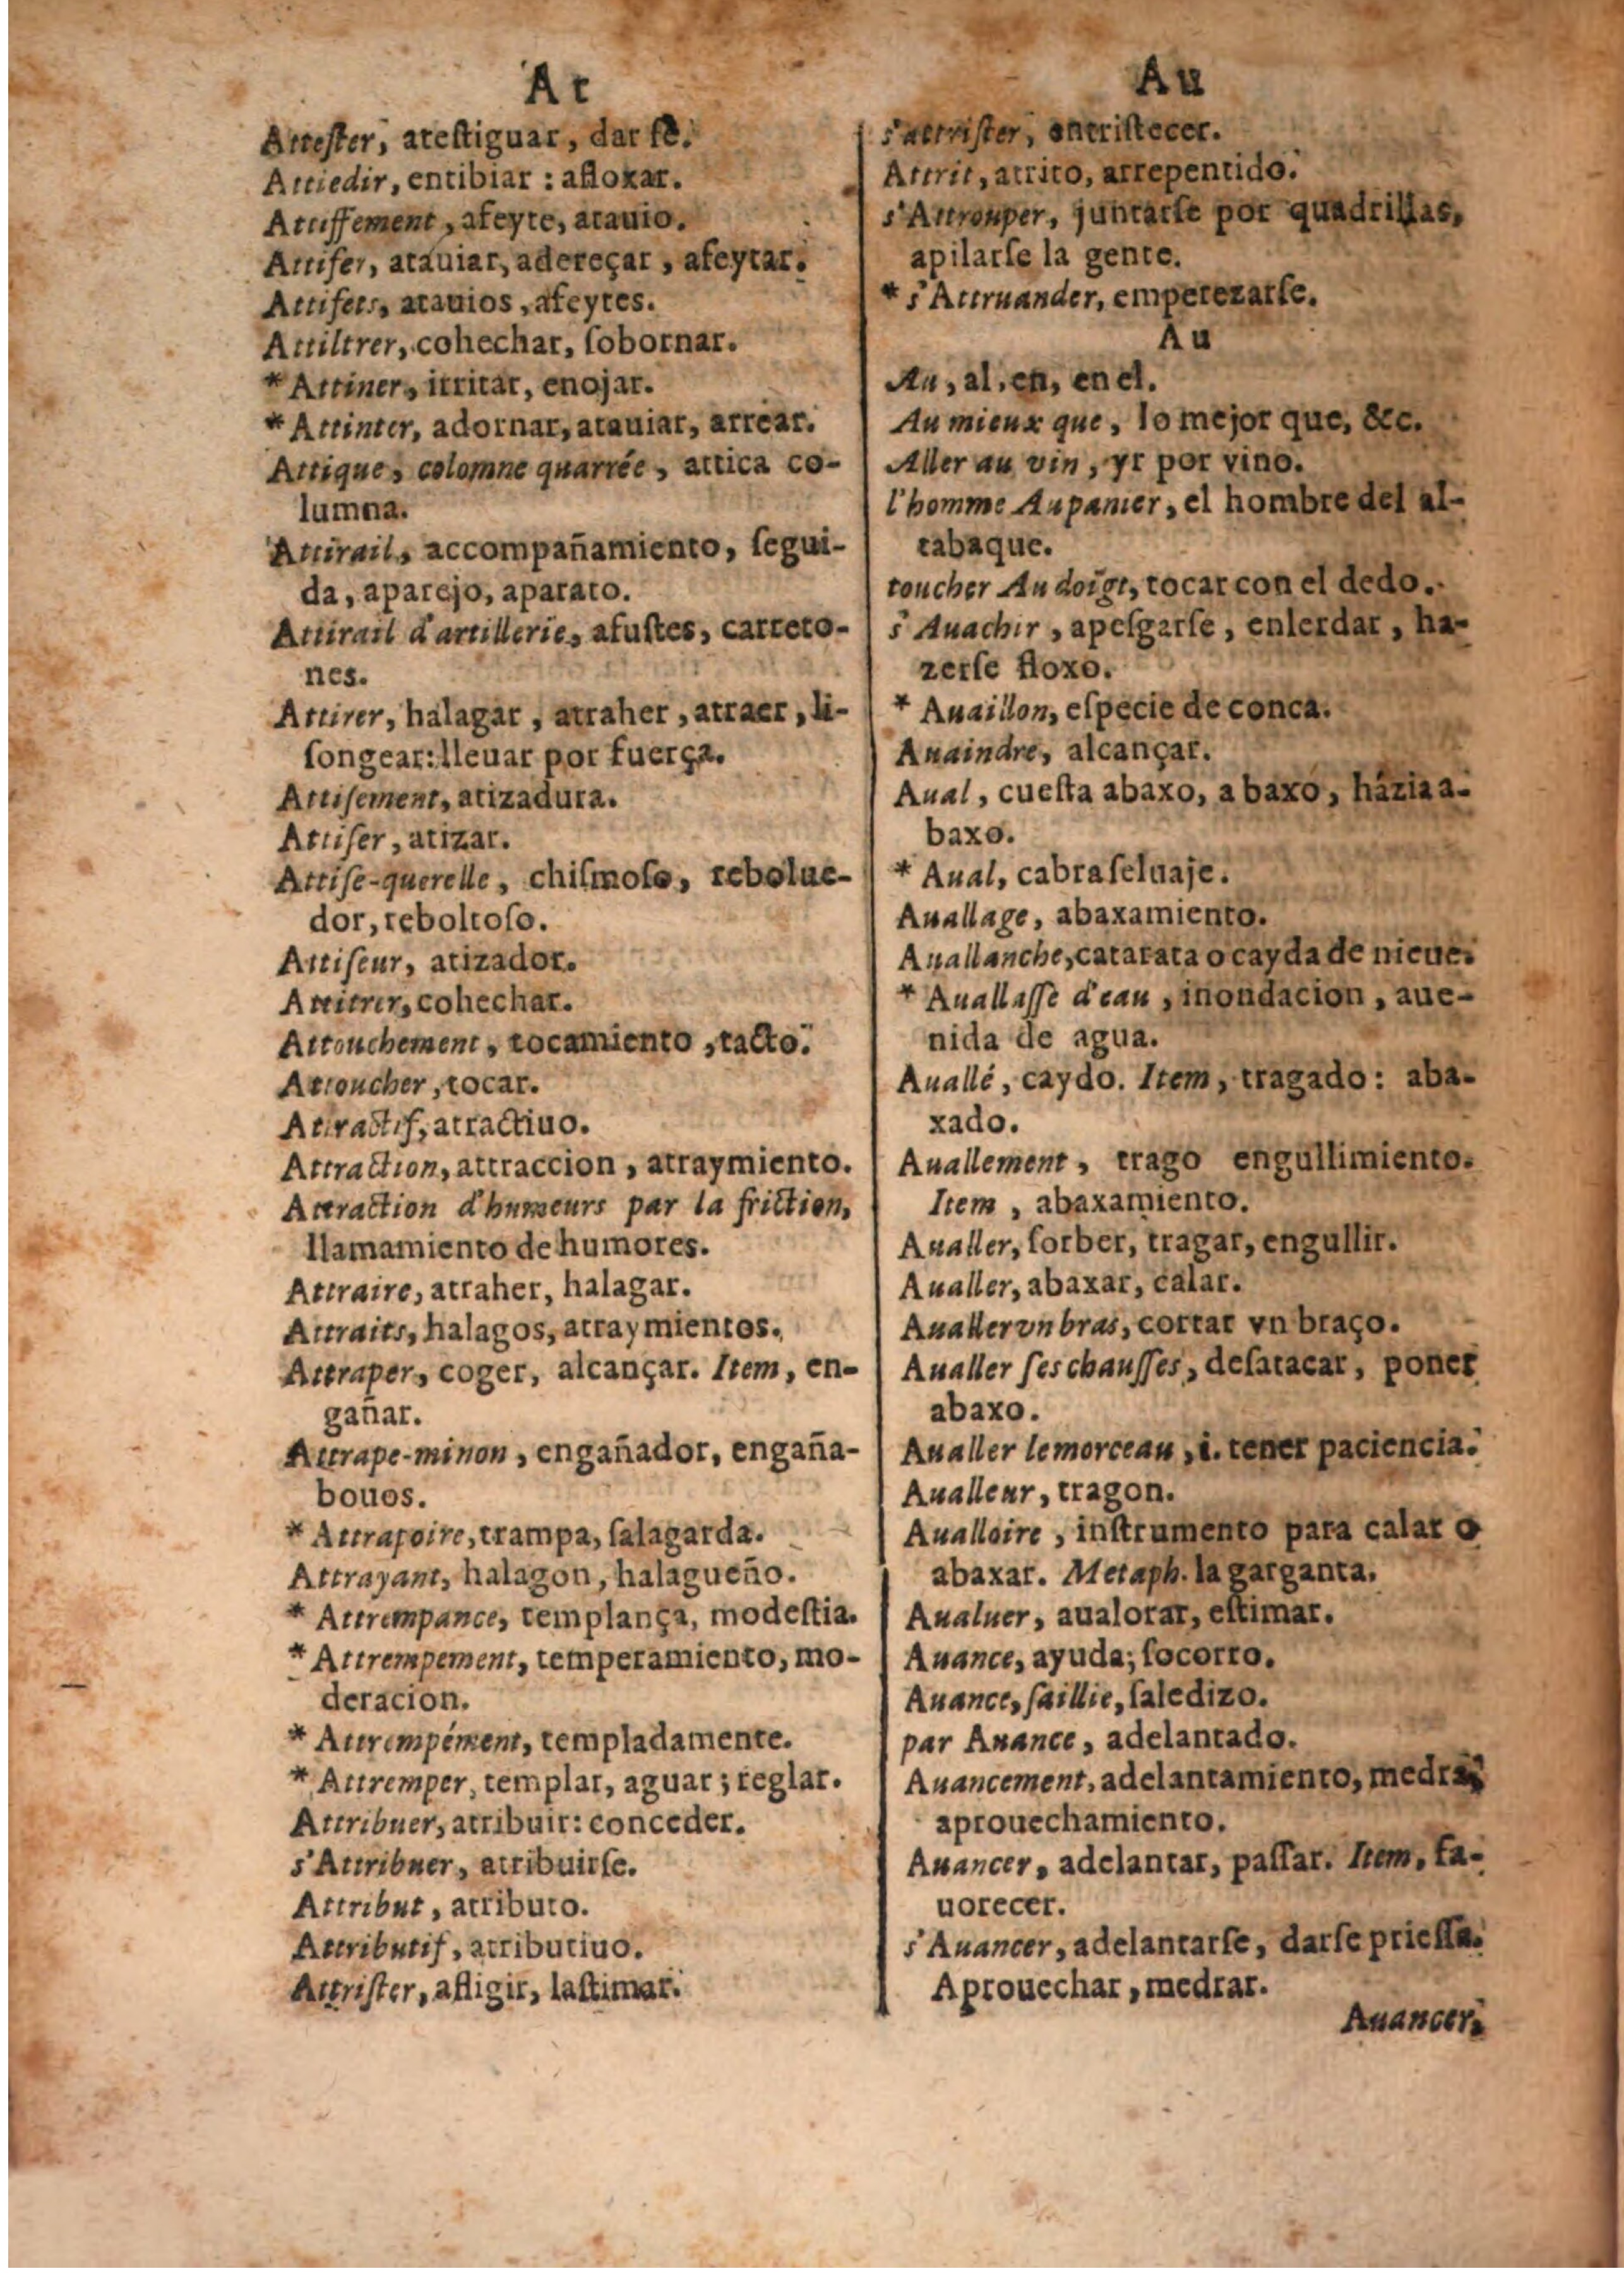 At
Attester, atestiguar, dar fè.
Attiedir, entibiar : afloxar.
Attiffement, afeyte, atauio.
Attifer, atauiar, adereçar, afeytar.
Attifets, atauios, afeytes.
Attiltrer, cohechar, ſobornar.
* Attiner, irritar, enojar.
* Attinter, adornar, atauiar, arrear.
Attique, colomne quarrée, attica co-
lumna.
Attirail, accompañamiento, ſegui-
da, aparejo, aparato.
Attirail d'artillerie, afuſtes, carreto-
nes.
Attirer, halagar, atraher, atraer, li-
ſongear: lleuar por fuerça.
Attiſement, atizadura.
Attiſer, atizar.
Attiſe-querelle, chiſmoſo, rebolue-
dor, reboltoſo.
Attiſeur, atizador.
Attitrer, cohechar.
Attouchement, tocamiento, tacto.
Attoucher, tocar.
Attractif, atractiuo.
Attraction, attraccion, atraymiento.
Attraction d'humeurs par la friction,
llamamiento de humores.
Attraire, atraher, halagar.
Attraits, halagos, atraymientos.
Attraper, coger, alcançar. Item, en-
gañar.
Attrape-minon, engañador, engaña-
bouos.
* Attrapoire, trampa, ſalagarda.
Attrayant, halagon, halagueño.
* Attrempance, templança, modeſtia.
* Attrempement, temperamiento, mo-
deracion.
* Attrempément, templadamente.
* Attremper, templar, aguar ; reglar.
Attribuer, atribuir: conceder.
s'Attribuer, atribuirſe.
Attribut, atributo.
Attributif, atributiuo.
Attriſter, afligir, laſtimar.
Au
s'attriſter, entriſtecer.
Attrit, atrito, arrepentido.
s'Attrouper, juntarſe por quadrillas,
apilarſe la gente.
* s'Attruander, emperezarſe.
Au
Au, al, en, en el.
Au mieux que, lo mejor que, &c.
Aller au vin, yr por vino.
l'homme Au panier, el hombre del al-
tabaque.
toucher Au doigt, tocar con el dedo.
s'Auachir, apeſgarſe, enlerdar, ha-
zerſe floxo.
* Auaillon, eſpecie de conca.
Auaindre, alcançar.
Aual, cueſta abaxo, a baxo, házia a-
baxo.
* Aual, cabra ſeluaje.
Auallage, abaxamiento.
Auallanche, catarata o cayda de nieue.
* Auallaſſe d'eau, inondacion, aue-
nida de agua.
Auallé, caydo. Item, tragado: aba-
xado.
Auallement, trago engullimiento.
Item, abaxamiento.
Aualler, ſorber, tragar, engullir.
Aualler, abaxar, calar.
Aualler vn bras, cortar vn braço.
Aualler ſes chauſſes, deſatacar, poner
abaxo.
Aualler le morceau, i. tener paciencia.
Aualleur, tragon.
Aualloire, inſtrumento para calar o
abaxar. Metaph. la garganta.
Aualuer, aualorar, eſtimar.
Auance, ayuda; ſocorro.
Auance, ſaillie, ſaledizo.
par Auance, adelantado.
Auancement, adelantamiento, medra,
aprouechamiento.
Auancer, adelantar, paſſar. Item, fa-
uorecer.
s'Auancer, adelantarſe, darſe prieſſa.
Aprouechar, medrar.
Auancer,